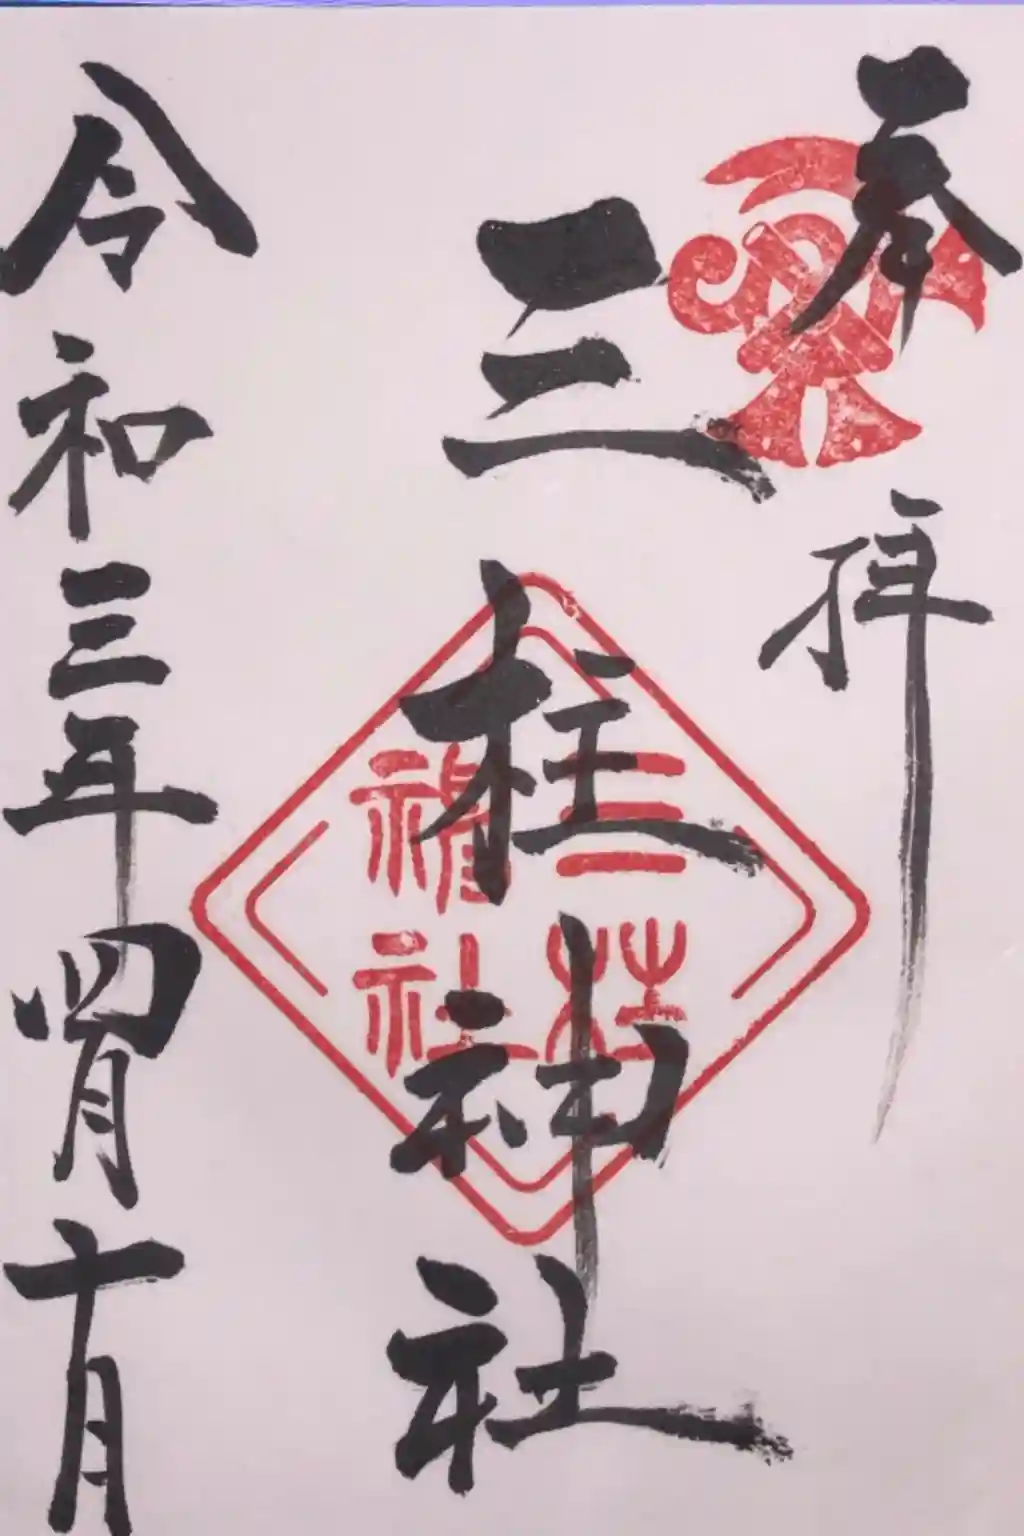 奉拝
三柱神社
三柱
神社
令和三年四月十日